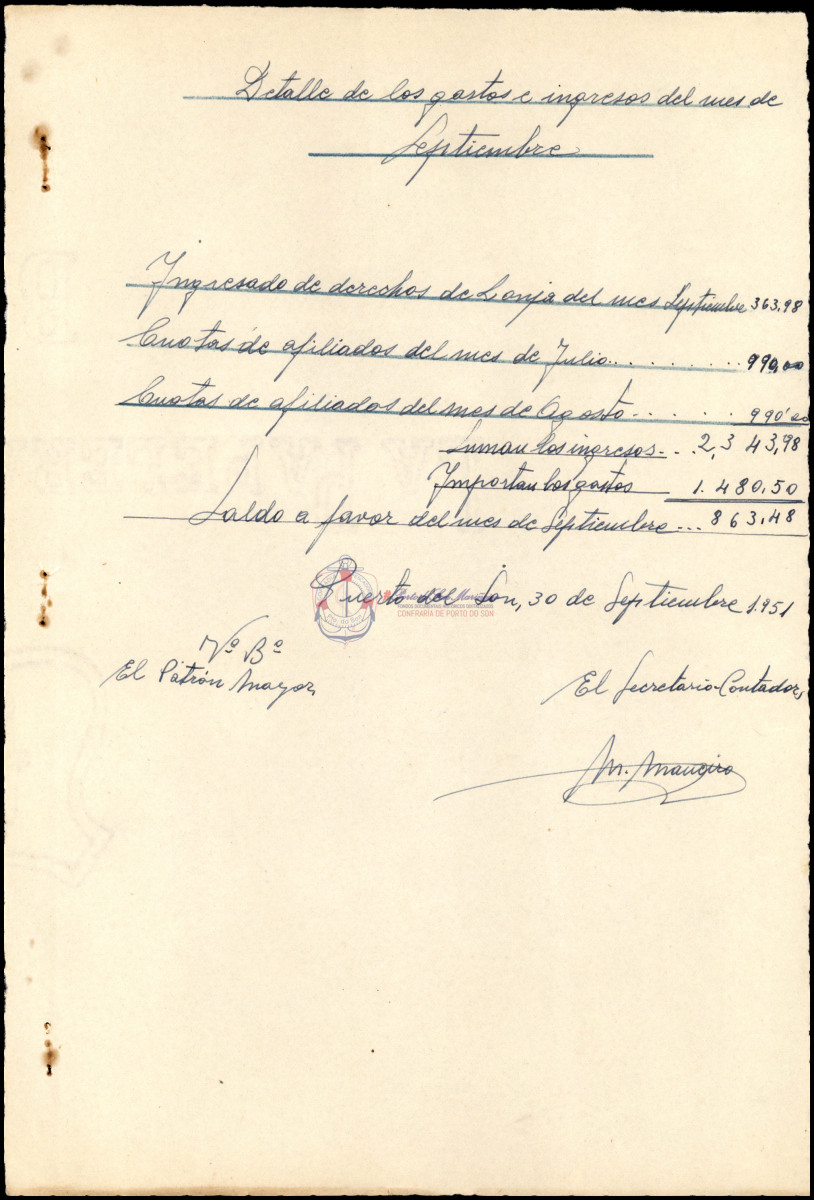 Detalle de los gastos e ingresos del mes de
Septiembre
Ingresado de derechos de Lonja del mes Septiembre 363,98
Cuotas de afiliados del mes de Julio.. . . . . . . .. 990,00
Cuotas de afiliados del mes de Agosto.. . . . . . 990'00
Suman los ingresos. . . 2,343,98
Importan los gastos 1.480,50
Saldo a favor del mes de Septiembre... 863,48
Puerto del Son, 30 de Septiembre 1.951
FONDOS DOCUMENTAIS HISTÓRICOS DIXITALIZADOS
CONFRARÍA DE PORTO DO SON
Vº Bº
El Patrón Mayor,
El Secretario-Contador,
M. Maneiro